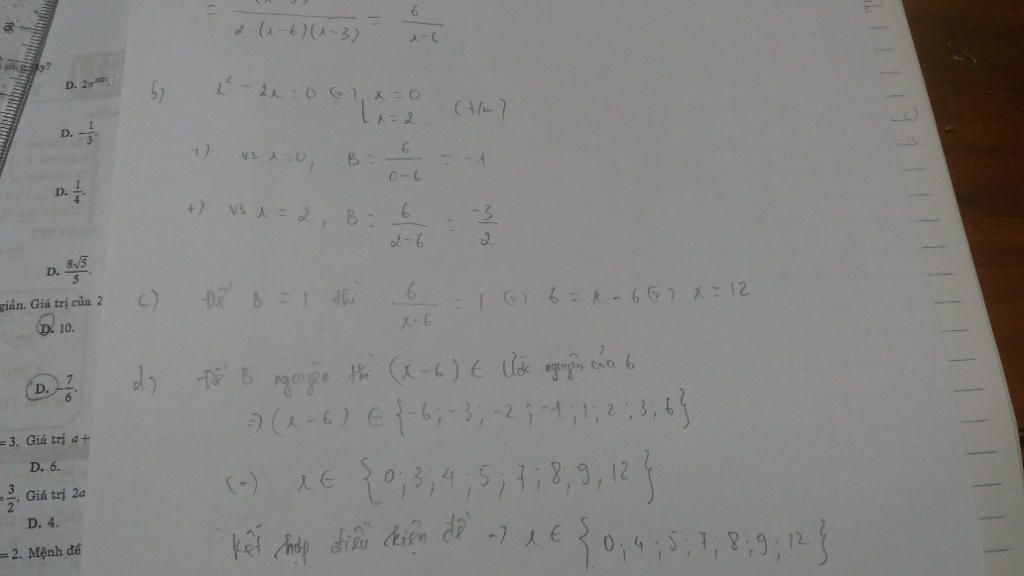 = / 2.(x-6)(x-3) = 6/x-6
b) x² - 2x = 0 (=) [x = 0
x = 2 (t/m)
+) vs x = 0, B = 6/0-6 = -1
+) vs x = 2, B = 6/2-6 = -3/2
c) Để B = 1 thì 6/x-6 = 1 (=) 6 = x - 6 (=) x = 12
d) Để B nguyên thì (x-6) ∈ Ước nguyên của 6
=) (x-6) ∈ {-6; -3; -2; -1; 1; 2; 3; 6}
(=) x ∈ {0; 3; 4; 5; 7; 8, 9, 12}
Kết hợp điều kiện đề -) x ∈ {0; 4; 5; 7; 8; 9; 12}
D. 2π
D. -1/3.
D. 1/4.
D. 8√5/5.
giản. Giá trị của 2
D. 10.
D. -7/6.
= 3. Giá trị a +
D. 6.
= 3/2. Giá trị 2a
D. 4.
= 2. Mệnh đề